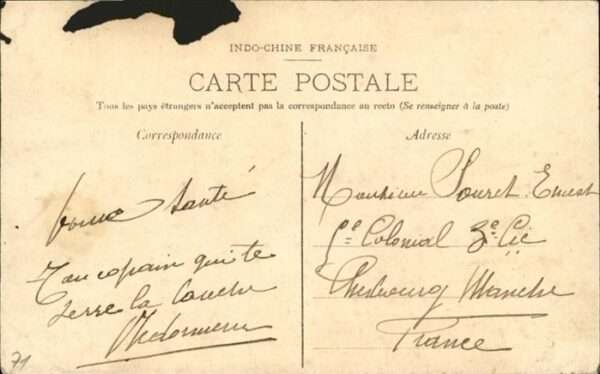 INDO-CHINE FRANÇAISE
CARTE POSTALE
Tous les pays étrangers n'acceptent pas la correspondance au recto (Se renseigner à la poste)
Correspondance
bonne Santé
Ton copain qui te
serre la
Adresse
Monsieur Ernest
Colonial 3e Cie
Cherbourg Manche
France
71